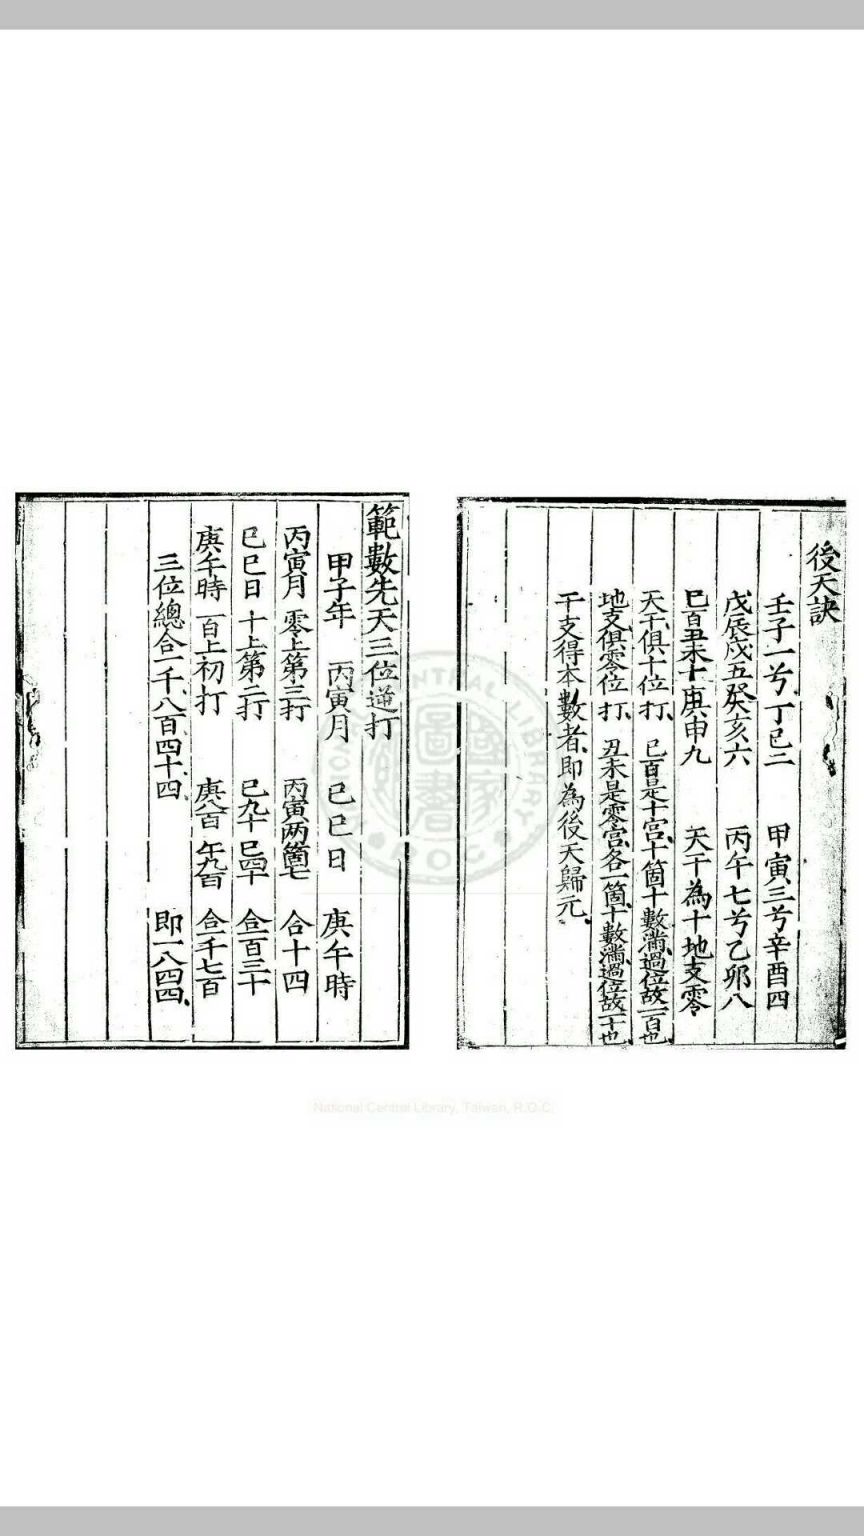 後天訣
壬子一兮丁巳二 甲寅三兮辛酉四
戊辰戌五癸亥六 丙午七兮乙卯八
己百丑未十庚申九 天干為十地支零
天干俱十位打、己百是十宮、十箇十數滿、過位故一百也
地支俱零位打、丑未是零宮、各一箇十數滿、過位故一十也
干支得本數者、即為後天歸元、
範數先天三位逆打
甲子年 丙寅月 己巳日 庚午時
丙寅月 零上第三打 丙寅两箇七 合十四
己巳日 十上第二打 己九十 巳四十 合一百三十
庚午時 一百上初打 庚八百 午九百 合一千七百
三位總合一千、八百、四十、四、 即一八四四、
National Central Library, Taiwan, R.O.C.